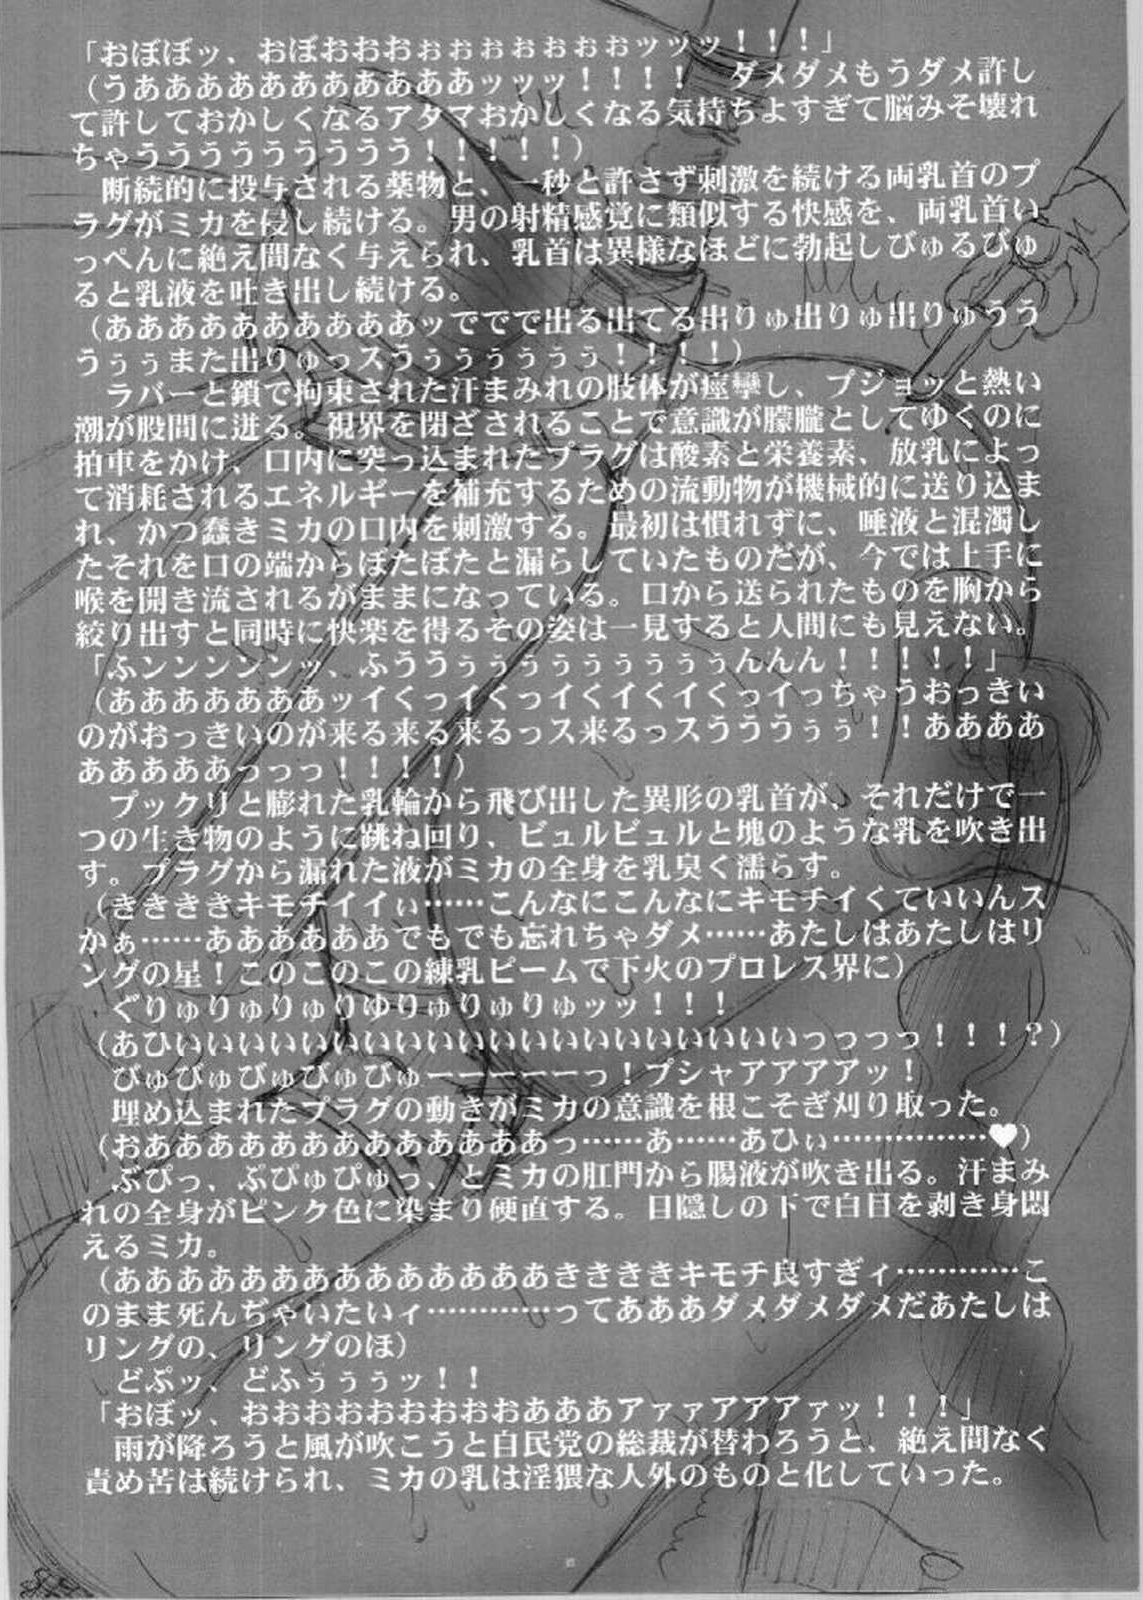 「おぼぼッ、おぼおおおぉぉぉぉぉぉぉッッッ！！！」
(うあああああああああああッッッ！！！！　ダメダメもうダメ許し
て許しておかしくなるアタマおかしくなる気持ちよすぎて脳みそ壊れ
ちゃうううううううう！！！！！)
断続的に投与される薬物と、一秒と許さず刺激を続ける両乳首のプ
ラグがミカを侵し続ける。男の射精感覚に類似する快感を、両乳首い
っぺんに絶え間なく与えられ、乳首は異様なほどに勃起しびゅるびゅ
ると乳液を吐き出し続ける。
(ああああああああああッででで出る出てる出りゅ出りゅ出りゅうう
うぅぅまた出りゅっスうぅぅぅぅぅぅ！！！！)
ラバーと鎖で拘束された汗まみれの肢体が痙攣し、プジョッと熱い
潮が股間に迸る。視界を閉ざされることで意識が朦朧としてゆくのに
拍車をかけ、口内に突っ込まれたプラグは酸素と栄養素、放乳によっ
て消耗されるエネルギーを補充するための流動物が機械的に送り込ま
れ、かつ蠢きミカの口内を刺激する。最初は慣れずに、唾液と混濁し
たそれを口の端からぼたぼたと漏らしていたものだが、今では上手に
喉を開き流されるがままになっている。口から送られたものを胸から
絞り出すと同時に快楽を得るその姿は一見すると人間にも見えない。
「ふンンンンンッ、ふううぅぅぅぅぅぅぅぅんんん！！！！！」
(あああああああッイくっイくっイくイくイくっイっちゃうおっきい
のがおっきいのが来る来る来るっス来るっスうううぅぅ！！ああああ
あああああっっっ！！！！)
プックリと膨れた乳輪から飛び出した異形の乳首が、それだけで一
つの生き物のように跳ね回り、ビュルビュルと塊のような乳を吹き出
す。プラグから漏れた液がミカの全身を乳臭く濡らす。
(きききキモチイイぃ……こんなにこんなにキモチイくていいんス
かぁ……ああああああでもでも忘れちゃダメ……あたしはあたしはリ
ングの星！このこのこの練乳ビームで下火のプロレス界に)
ぐりゅりゅりゅりゆりゅりゅりゅッッ！！！
(あひぃいいいいいいいいいいいいいいいいいいいいっっっっ！！！？)
びゅびゅびゅびゅびゅーーーーーっ！プシャアアアアッ！
埋め込まれたプラグの動きがミカの意識を根こそぎ刈り取った。
(おああああああああああああああっ……あ……あひぃ……………♥)
ぶぴっ、ぷぴゅぴゅっ、とミカの肛門から腸液が吹き出る。汗まみ
れの全身がピンク色に染まり硬直する。目隠しの下で白目を剥き身悶
えるミカ。
(ああああああああああああああきききキモチ良すぎィ…………こ
のまま死んぢゃいたいィ…………ってあああダメダメダメだあたしは
リングの、リングのほ)
どぷッ、どふぅぅぅッ！！
「おぼッ、おおおおおおおおおあああアァァアアアァッ！！！」
雨が降ろうと風が吹こうと自民党の総裁が替わろうと、絶え間なく
責め苦は続けられ、ミカの乳は淫猥な人外のものと化していった。